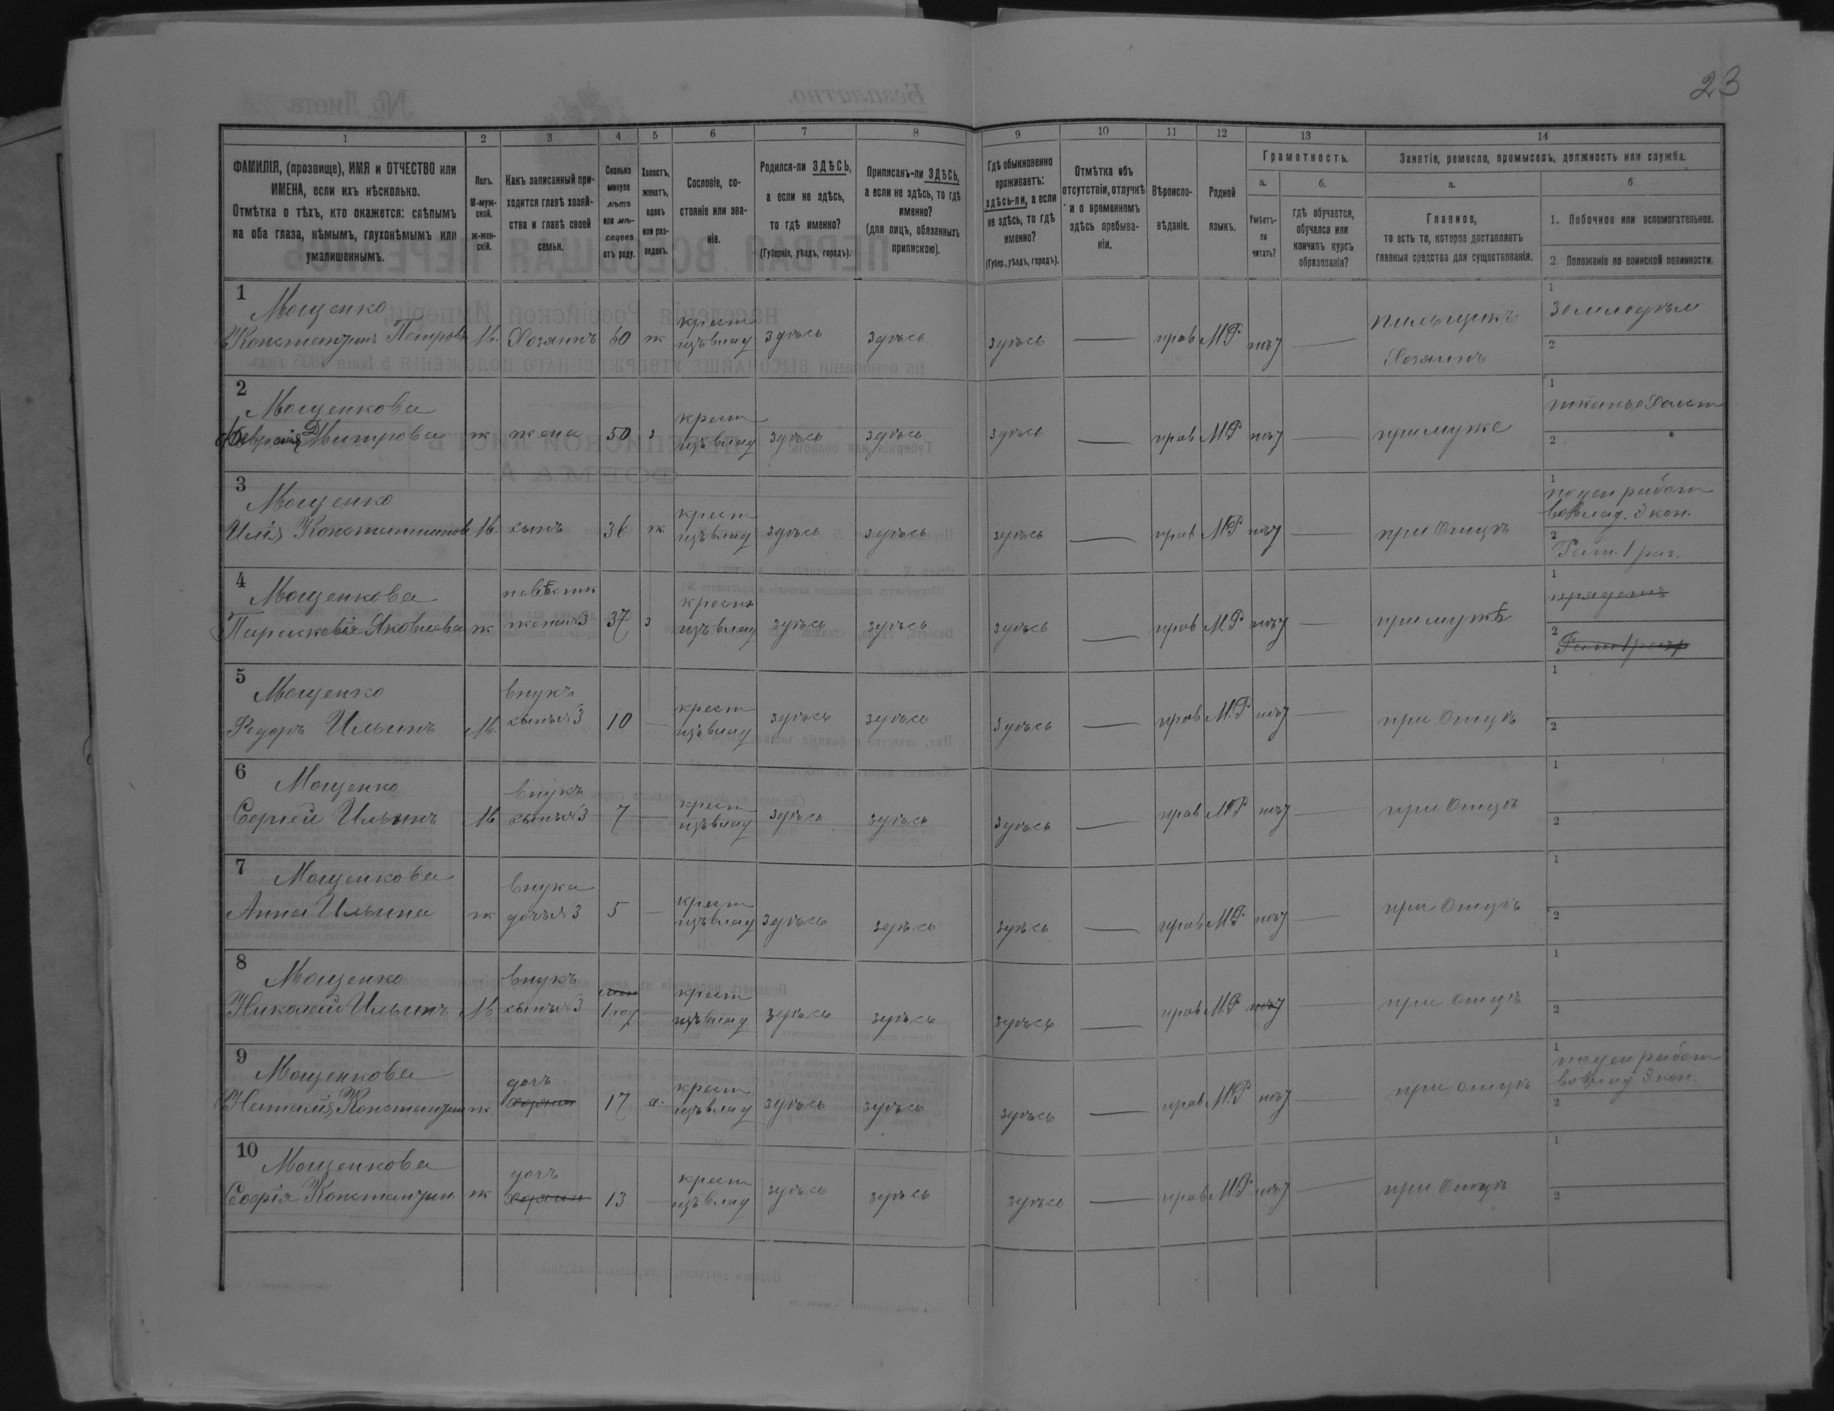 23
1 2 3 4 5 6 7 8 9 10 11 12 13 14
ФАМИЛІЯ, (прозвище), ИМЯ и ОТЧЕСТВО или
ИМЕНА, если ихъ нѣсколько.
Отмѣтка о тѣхъ, кто окажется: слѣпымъ
на оба глаза, нѣмымъ, глухонѣмымъ или
умалишеннымъ.
Полъ.
М-муж-
ской.
ж-жен-
скій.
Какъ записанный при-
ходится главѣ хозяй-
ства и главѣ своей
семьи.
Сколько
минуло
лѣтъ
или мѣ-
сяцевъ
отъ роду.
Холостъ,
женатъ,
вдовъ
или раз-
веденъ.
Сословіе, со-
стояніе или зва-
ніе.
Родился-ли ЗДѢСЬ,
а если не здѣсь,
то гдѣ именно?
(Губернія, уѣздъ, городъ).
Приписанъ-ли ЗДѢСЬ,
а если не здѣсь, то гдѣ
именно?
(для лицъ, обязанныхъ
припискою).
Гдѣ обыкновенно
проживаетъ:
здѣсь-ли, а если
не здѣсь, то гдѣ
именно?
(Губер., уѣздъ, городъ).
Отмѣтка объ
отсутствіи, отлучкѣ
и о временномъ
здѣсь пребыва-
ніи.
Вѣроиспо-
вѣданіе.
Родной
языкъ.
Грамотность.
а. б.
Умѣетъ-
ли
читать?
гдѣ обучается,
обучался или
кончилъ курсъ
образованія?
Занятіе, ремесло, промыселъ, должность или служба.
а. б
Главное,
то есть то, которое доставляетъ
главныя средства для существованія.
1. Побочное или вспомогательное.
2. Положеніе по воинской повинности.
1
Мощенко
Константинъ Петровъ М. Хозяинъ 60 ж крест изъ влад здѣсь здѣсь здѣсь — прав М.Р. нѣт — пильщикъ
Хозяинъ
1 земледѣл
2
2
Мощенкова
Дмитрова ж жена 50 з крест изъ влад здѣсь здѣсь здѣсь — прав М.Р нѣт — при муже
1
2
3
Мощенко
Илія Константинов М. сынъ 36 ж. крест изъ влад здѣсь здѣсь здѣсь — прав М.Р нѣт — при Отцѣ
1 поден работ
во влад. Экон.
2
4
Мощенкова
Парасковія Яковлева ж невѣстк жена 3 37 з крестн изъ влад здѣсь здѣсь здѣсь — прав М.Р нѣт — при мужѣ
1
2
5
Мощенко
Федоръ Ильинъ М. внукъ сынъ 3 10 — крест изъ влад здѣсь здѣсь здѣсь — прав М.Р нѣт — при Отцѣ
1
2
6
Мощенко
Сергей Ильинъ М внукъ сынъ 3 7 — крест изъ влад здѣсь здѣсь здѣсь — прав М.Р нѣт — при Отцѣ
1
2
7
Мощенкова
Анна Ильина ж внука дочь 3 5 — крест изъ влад здѣсь здѣсь здѣсь — прав М.Р. нѣт — при Отцѣ
1
2
8
Мощенко
Николай Ильинъ М внукъ сынъ 3 1 год крест изъ влад здѣсь здѣсь здѣсь — прав М.Р нѣт — при отцѣ
1
2
9
Мощенкова
Наталія Константин ж дочь 17 крест изъ влад здѣсь здѣсь здѣсь — прав М.Р нѣт — при отцѣ
1 поден работ
во влад Экон.
2
10
Мощенкова
Софія Константин ж дочь 13 — крест изъ влад здѣсь здѣсь здѣсь — прав М.Р. нѣт — при Отцѣ
1
2